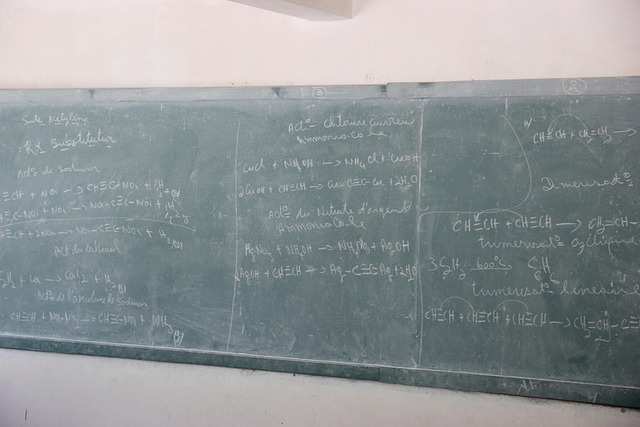 Suite Acétylène
Rx Substitution
Act° de Sodium
CH≡CH + Na → CH≡C-Na + H₂
CH≡C-Na + Na → Na-C≡C-Na + H₂
CH≡CH + 2Na → Na-C≡C-Na + H₂
Act° du Calcium
C₂H₂ + Ca → CaC₂ + H₂
Act° de l'amidure de Sodium
CH≡CH + Na-NH₂ → CH≡C-Na + NH₃
③
Act° Chlorure cuivreux
Ammoniacale
CuCl + NH₄OH → NH₄Cl + CuOH
2CuOH + CH≡CH → Cu-C≡C-Cu + 2H₂O
Act° du Nitrate d'argent
Ammoniacale
AgNO₃ + NH₄OH → NH₄NO₃ + AgOH
AgOH + CH≡CH → Ag-C≡C-Ag + 2H₂O
②
CH≡CH + CH≡CH →
Dimerisat°
CH≡CH + CH≡CH → CH₂=CH-
trimerisat° cyclique
3C₂H₂ 600°C C₆H₆
trimerisat° linéaire
CH≡CH + CH≡CH + CH≡CH → CH₂=CH-C≡